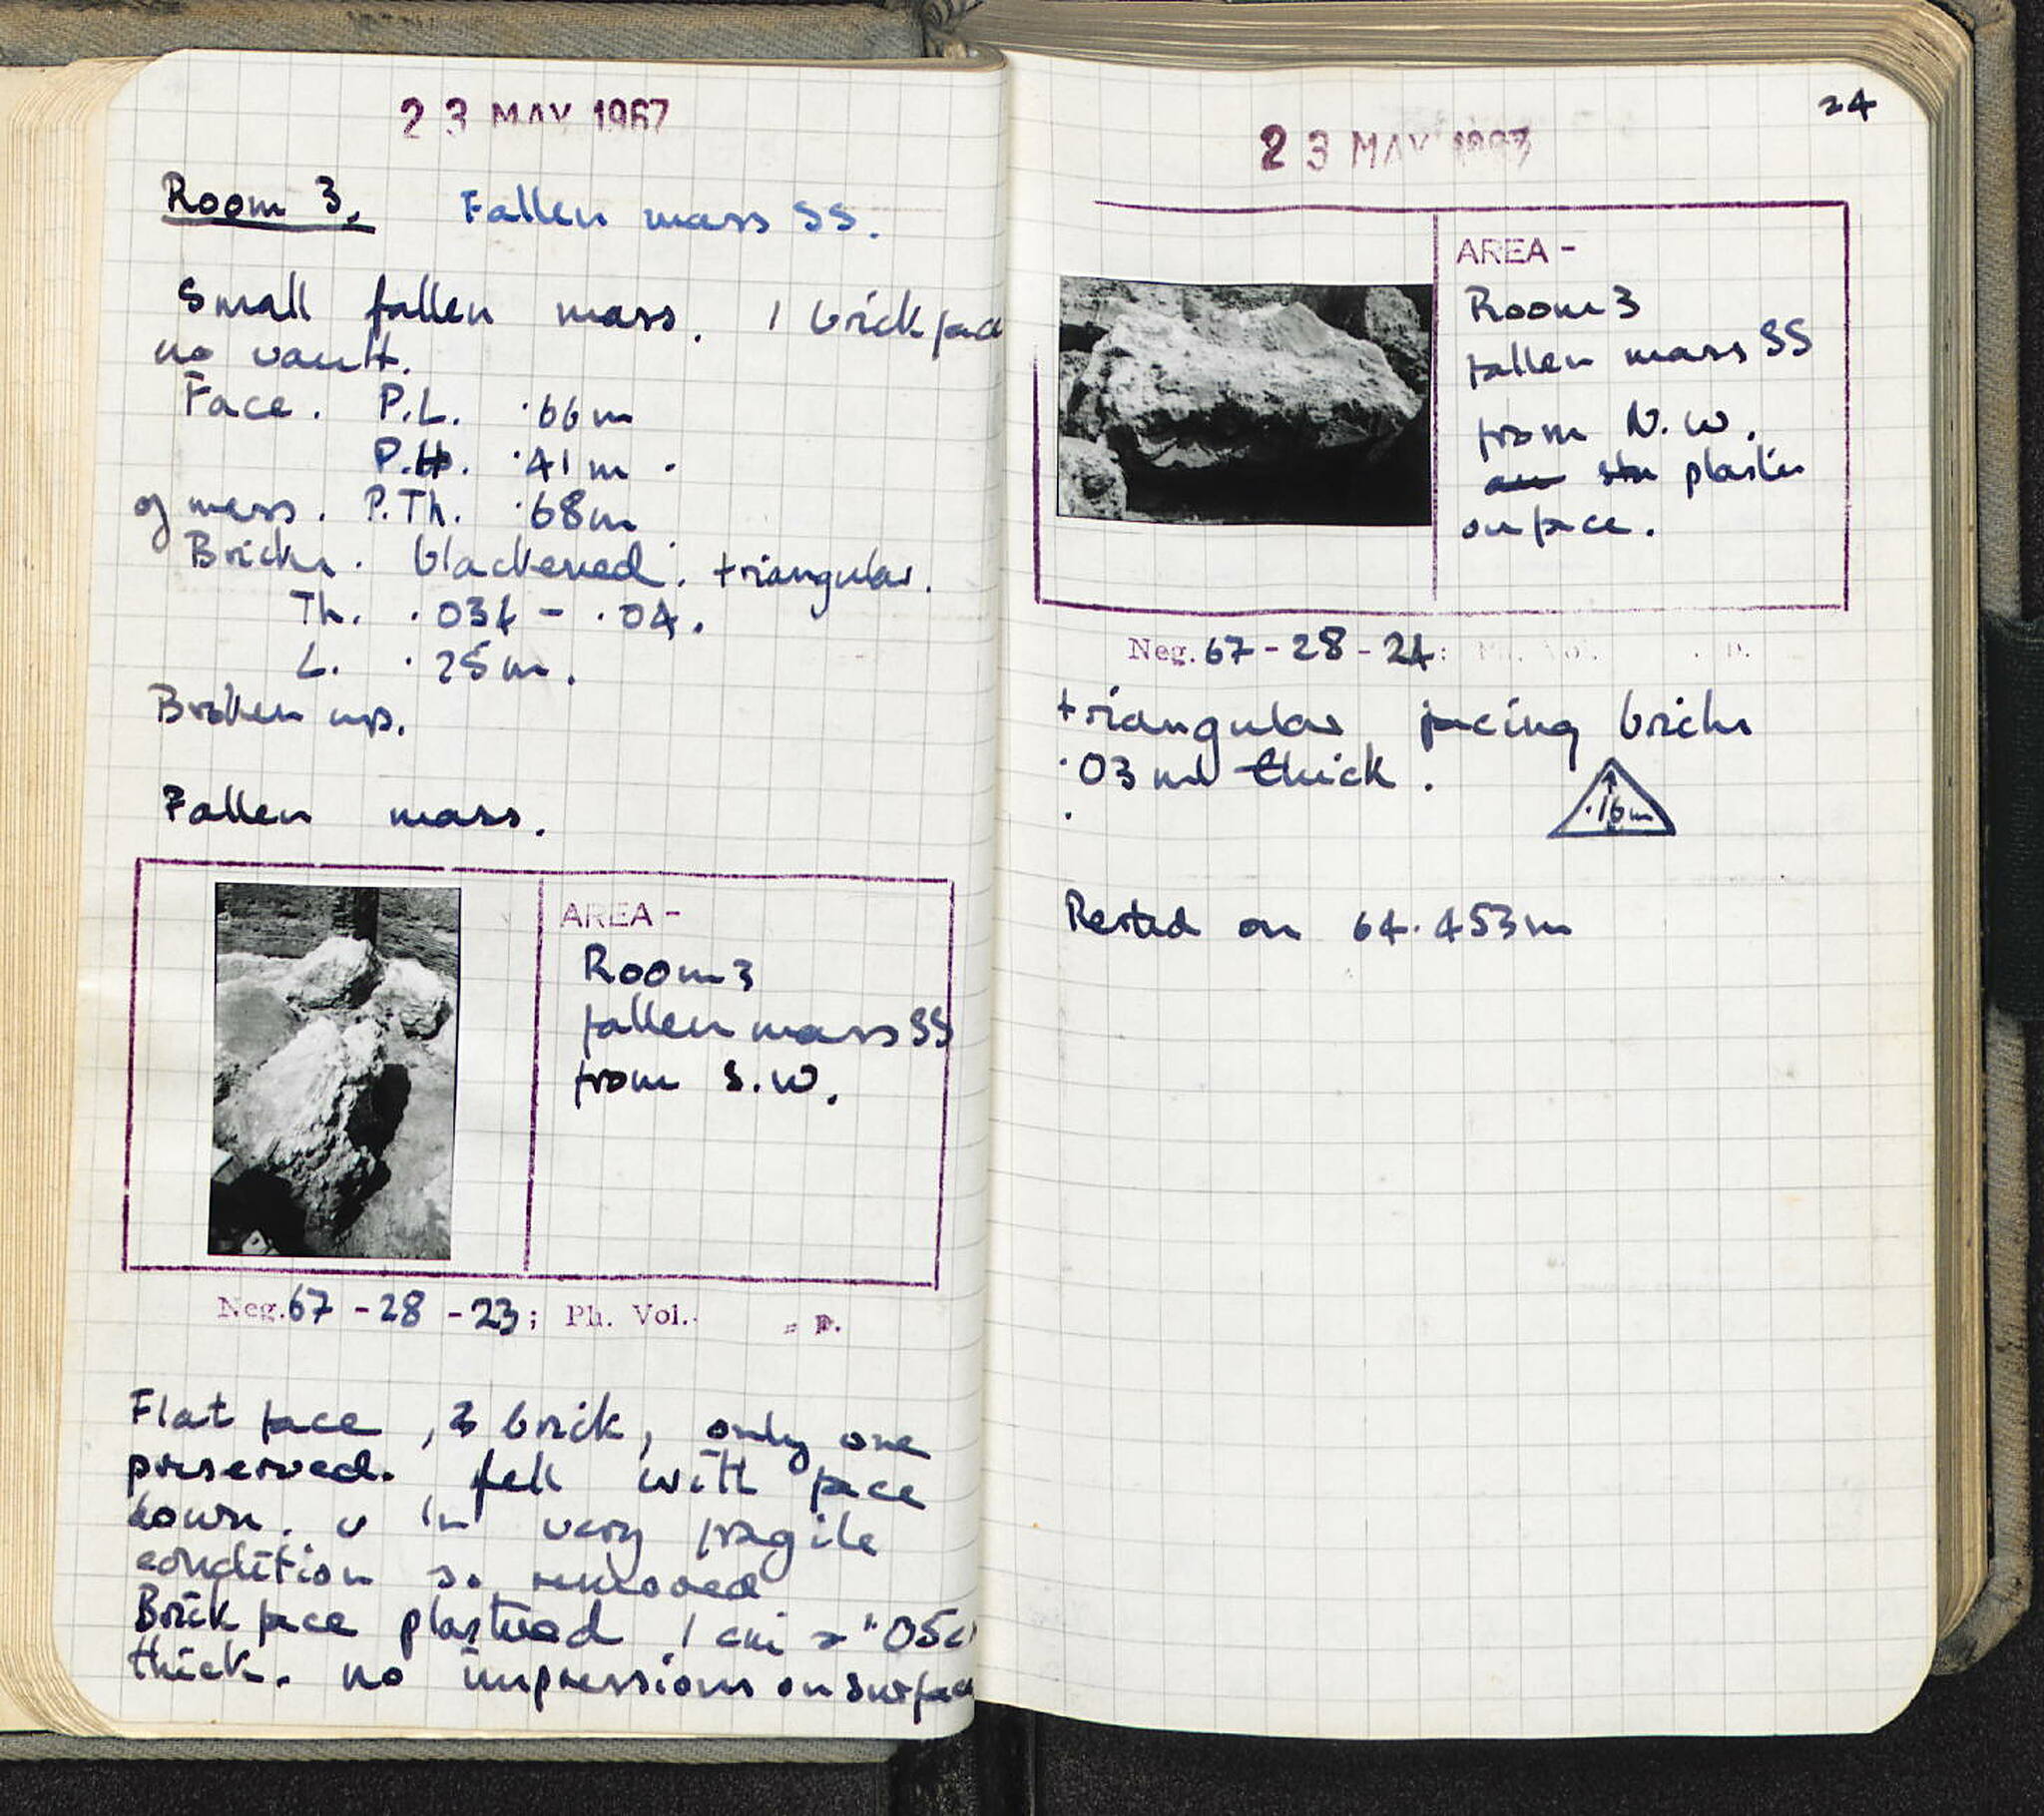 23 MAY 1967
Room 3. Fallen mass SS.
Small fallen mass. 1 brick face
no vault.
Face. P.L. .66m
P.H. .41m.
of mass. P.Th. .68m
Bricks. blackened. triangular.
Th. .034 - .04.
L. .25m.
Broken up.
Fallen mass.
AREA -
Room 3
fallen mass SS
from S.W.
Neg. 67 - 28 - 23; Ph. Vol. P.
Flat face, brick, only one
preserved. fell with face
down. in very fragile
condition so removed
Brick face plastered 1 cm
thick. no impressions on surface
24
23 MAY
AREA -
Room 3
fallen mass SS
from N.W.
plaster
on face.
Neg. 67 - 28 - 24: Ph. Vol. P.
triangular facing bricks
.03m thick.
.16m
Rested on 64.453m